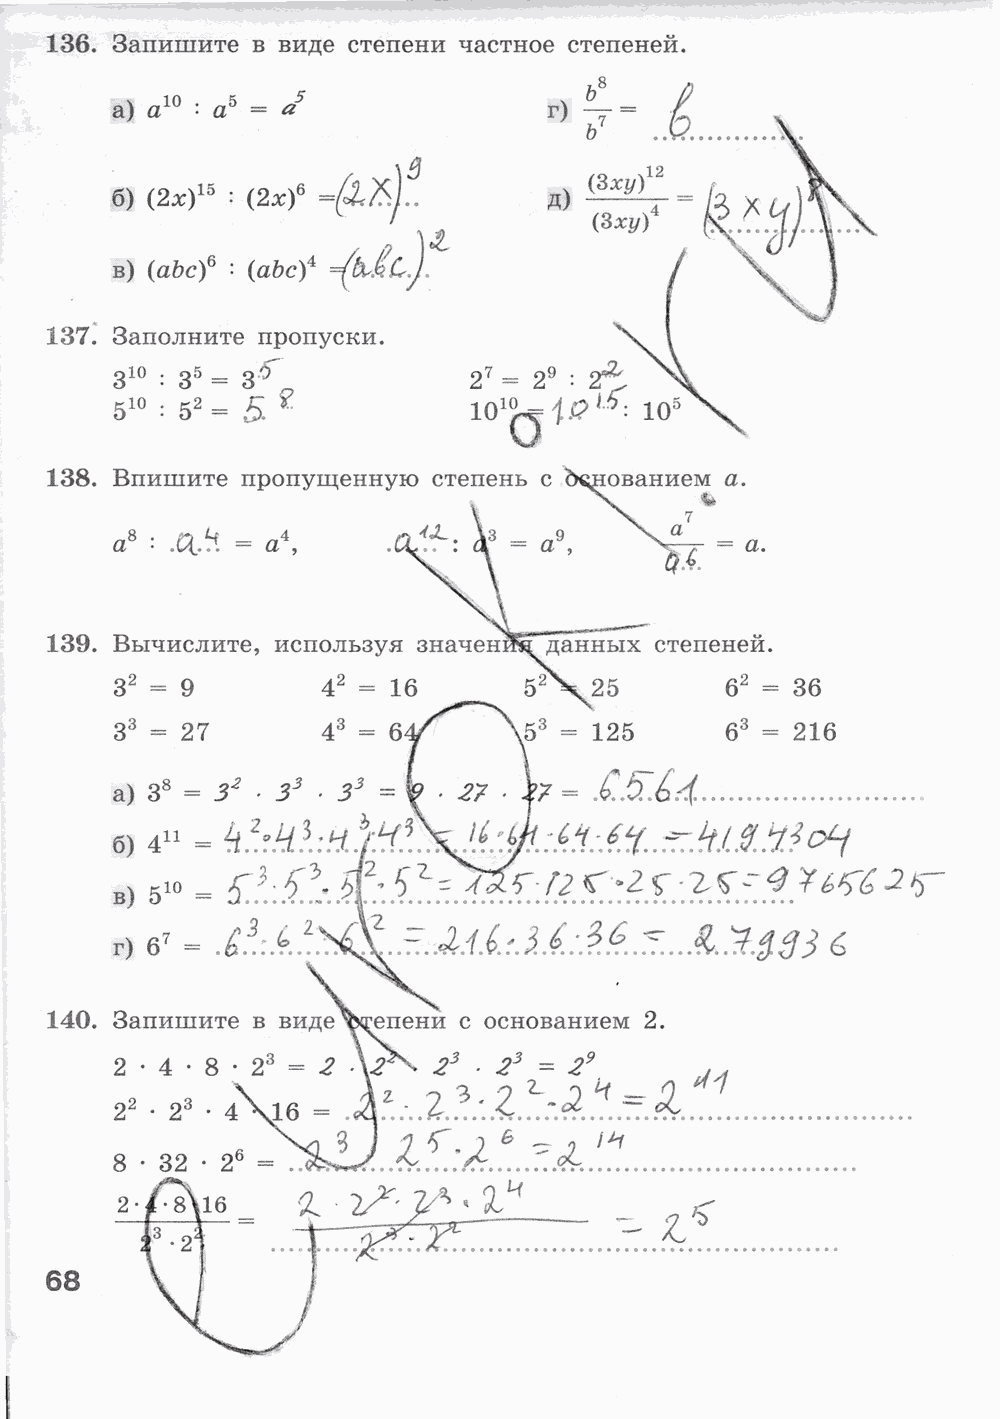 136. Запишите в виде степени частное степеней.
а) a¹⁰ : a⁵ = a⁵
г) b⁸/b⁷ = b
б) (2x)¹⁵ : (2x)⁶ = (2x)⁹
д) (3xy)¹²/(3xy)⁴ = (3xy)⁸
в) (abc)⁶ : (abc)⁴ = (abc)²
137. Заполните пропуски.
3¹⁰ : 3⁵ = 3⁵ 2⁷ = 2⁹ : 2²
5¹⁰ : 5² = 5⁸ 10¹⁰ = 10¹⁵ : 10⁵
138. Впишите пропущенную степень с основанием a.
a⁸ : a⁴ = a⁴, a¹² : a³ = a⁹, a⁷/a⁶ = a.
139. Вычислите, используя значения данных степеней.
3² = 9 4² = 16 5² = 25 6² = 36
3³ = 27 4³ = 64 5³ = 125 6³ = 216
а) 3⁸ = 3² · 3³ · 3³ = 9 · 27 · 27 = 6561
б) 4¹¹ = 4² · 4³ · 4³ · 4³ = 16 · 64 · 64 · 64 = 4194304
в) 5¹⁰ = 5³ · 5³ · 5² · 5² = 125 · 125 · 25 · 25 = 9765625
г) 6⁷ = 6³ · 6² · 6² = 216 · 36 · 36 = 279936
140. Запишите в виде степени с основанием 2.
2 · 4 · 8 · 2³ = 2 · 2² · 2³ · 2³ = 2⁹
2² · 2³ · 4 · 16 = 2² · 2³ · 2² · 2⁴ = 2¹¹
8 · 32 · 2⁶ = 2³ 2⁵ · 2⁶ = 2¹⁴
2 · 4 · 8 · 16/2³ · 2² = 2 · 2² · 2³ · 2⁴/2³ · 2² = 2⁵
68